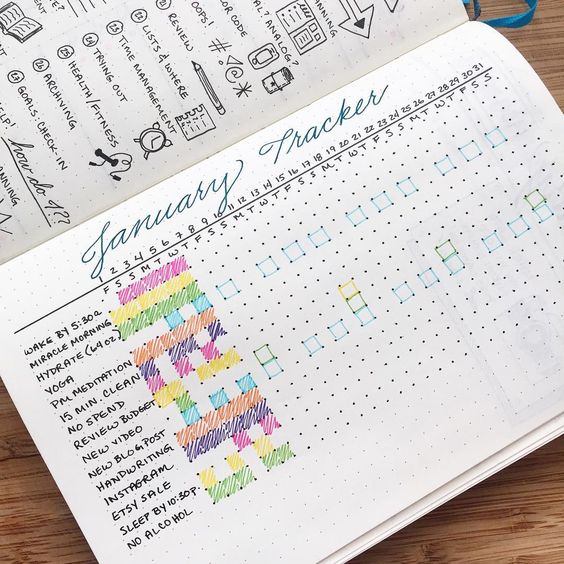 OOPS!
REVIEW
LISTS & WHERE
TIME MANAGEMENT
TRYING OUT
HEALTH/FITNESS
ARCHIVING
GOALS: CHECK-IN
how do I??
January Tracker
1 2 3 4 5 6 7 8 9 10 11 12 13 14 15 16 17 18 19 20 21 22 23 24 25 26 27 28 29 30 31
F S S M T W T F S S M T W T F S S M T W T F S S M T W T F S S
WAKE BY 5:30A
MIRACLE MORNING
HYDRATE (64OZ)
YOGA
PM MEDITATION
15 MIN. CLEAN
NO SPEND
REVIEW BUDGET
NEW VIDEO
NEW BLOG POST
HANDWRITING
INSTAGRAM
ETSY SALE
SLEEP BY 10:30P
NO ALCOHOL